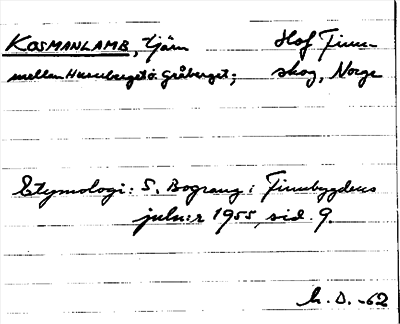 KOSMANLAMB, tjärn
Hof Finn-
mellan Husuberget o. Gråberget;
skog, Norge
Etymologi: S. Bograng i Finnbygdens
julnr 1955, sid. 9.
h. D. -62